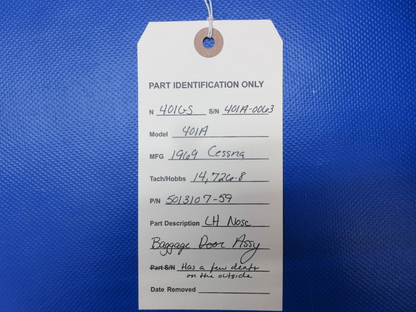 PART IDENTIFICATION ONLY
N 401GS S/N 401A-0063
Model 401A
MFG 1969 Cessna
Tach/Hobbs 14,726.8
P/N 5013107-59
Part Description LH Nose
Baggage Door Assy
Part S/N Has a few dents
on the outside
Date Removed